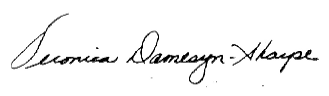 Veronica Damesyn-Sharpe